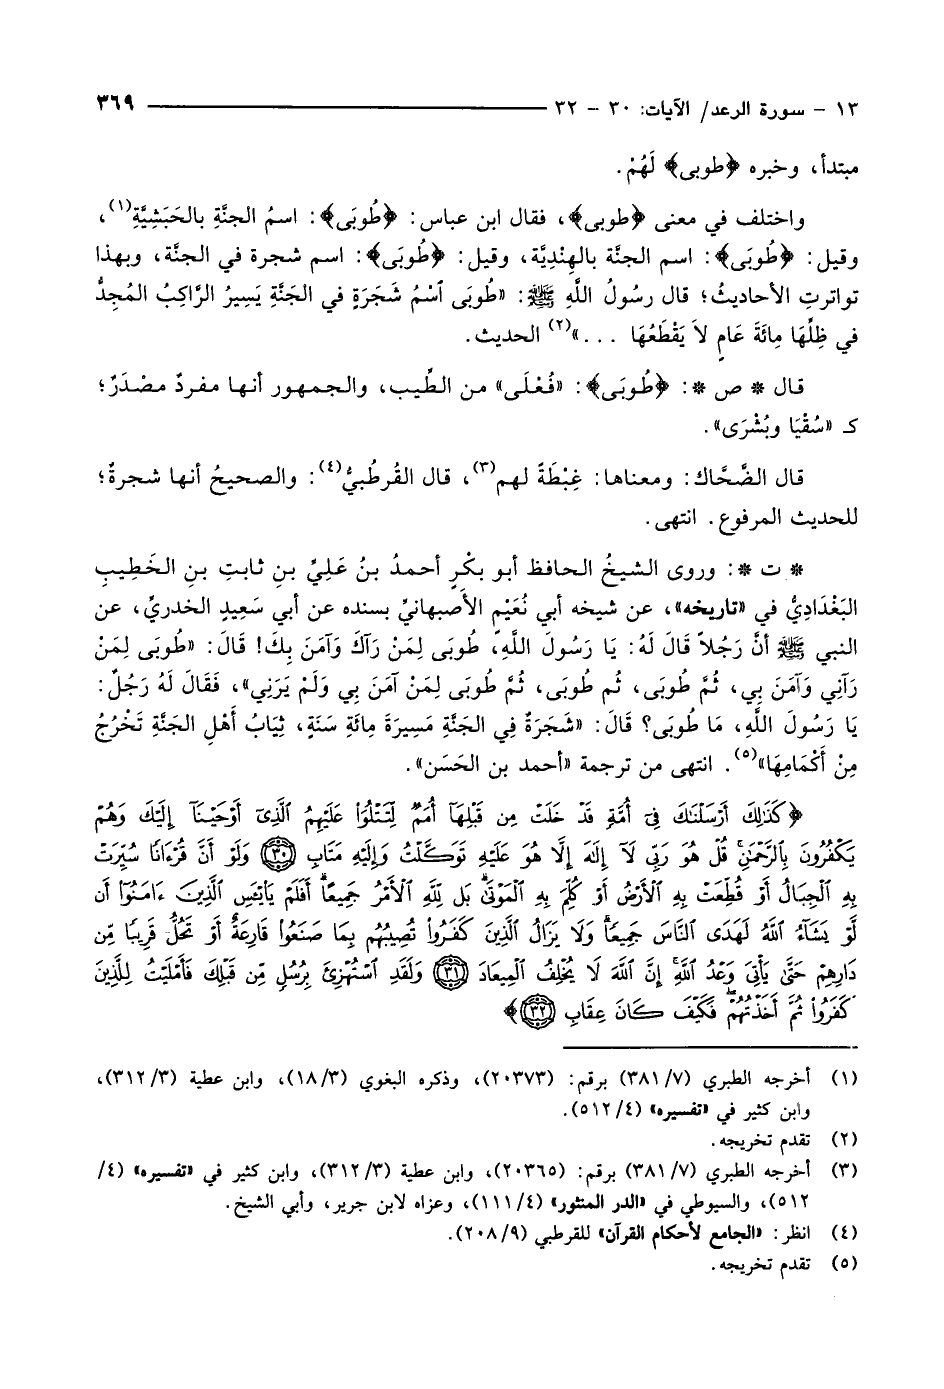 ١٣ - سورة الرعد/ الآيات: ٣٠ - ٣٢ ٣٦٩
مبتدأ، وخبره ﴿طوبى﴾ لَهُمْ.
واختلف في معنى ﴿طوبى﴾، فقال ابن عباس: ﴿طُوبَى﴾: اسمُ الجنَّةِ بالحَبَشِيَّةِ(١)،
وقيل: ﴿طُوبَى﴾: اسم الجنَّة بالهِنْدِيَّة، وقيل: ﴿طُوبَى﴾: اسم شجرة في الجنَّة، وبهذا
تواترتِ الأحاديثُ؛ قال رسُولُ اللَّهِ ﷺ: «طُوبَى ٱسْمُ شَجَرَةٍ في الجَنَّةِ يَسِيرُ الرَّاكِبُ المُجِدُّ
في ظِلِّهَا مِائَةَ عَامٍ لاَ يَقْطَعُهَا ...»(٢) الحديث.
قال * ص *: ﴿طُوبَى﴾: «فُعْلَى» من الطِّيب، والجمهور أنها مفردٌ مصْدَرٌ؛
كـ «سُقْيَا وبُشْرَى».
قال الضَّحَّاك: ومعناها: غِبْطَةً لهم(٣)، قال القُرطُبيُّ(٤): والصحيحُ أنها شجرةٌ؛
للحديث المرفوع. انتهى.
* ت *: وروى الشيخُ الحافظ أبو بكْرٍ أحمدُ بنُ عَلِيِّ بنِ ثابتِ بنِ الخَطِيبِ
البَغْدَادِيُّ في «تاريخه»، عن شيخه أبي نُعَيْمٍ الأصبهانيِّ بسنده عن أبي سَعِيدٍ الخدريِّ، عن
النبي ﷺ أنَّ رَجُلاً قَالَ لَهُ: يا رَسُولَ اللَّهِ، طُوبَى لِمَنْ رَآكَ وَآمَنَ بِكَ! قَالَ: «طُوبَى لِمَنْ
رَآنِي وَآمَنَ بِي، ثُمَّ طُوبَى، ثُم طُوبَى، ثُمَّ طُوبَى لِمَنْ آمَنَ بِي وَلَمْ يَرَنِي»، فَقَالَ لَهُ رَجُلٌ:
يا رَسُولَ اللَّهِ، مَا طُوبَى؟ قَالَ: «شَجَرَةٌ فِي الجَنَّةِ مَسِيرَةَ مِائَةِ سَنَةٍ، ثِيَابُ أَهْلِ الجَنَّةِ تَخْرُجُ
مِنْ أَكْمَامِهَا»(٥). انتهى من ترجمة «أحمد بن الحَسَن».
﴿كَذَٰلِكَ أَرْسَلْنَٰكَ فِىٓ أُمَّةٍ قَدْ خَلَتْ مِن قَبْلِهَآ أُمَمٌ لِّتَتْلُوَا۟ عَلَيْهِمُ ٱلَّذِىٓ أَوْحَيْنَآ إِلَيْكَ وَهُمْ
يَكْفُرُونَ بِٱلرَّحْمَٰنِ ۚ قُلْ هُوَ رَبِّى لَآ إِلَٰهَ إِلَّا هُوَ عَلَيْهِ تَوَكَّلْتُ وَإِلَيْهِ مَتَابِ ﴿٣٠﴾ وَلَوْ أَنَّ قُرْءَانًا سُيِّرَتْ
بِهِ ٱلْجِبَالُ أَوْ قُطِّعَتْ بِهِ ٱلْأَرْضُ أَوْ كُلِّمَ بِهِ ٱلْمَوْتَىٰ ۗ بَل لِّلَّهِ ٱلْأَمْرُ جَمِيعًا ۗ أَفَلَمْ يَا۟يْـَٔسِ ٱلَّذِينَ ءَامَنُوٓا۟ أَن
لَّوْ يَشَآءُ ٱللَّهُ لَهَدَى ٱلنَّاسَ جَمِيعًا ۗ وَلَا يَزَالُ ٱلَّذِينَ كَفَرُوا۟ تُصِيبُهُم بِمَا صَنَعُوا۟ قَارِعَةٌ أَوْ تَحُلُّ قَرِيبًا مِّن
دَارِهِمْ حَتَّىٰ يَأْتِىَ وَعْدُ ٱللَّهِ ۚ إِنَّ ٱللَّهَ لَا يُخْلِفُ ٱلْمِيعَادَ ﴿٣١﴾ وَلَقَدِ ٱسْتُهْزِئَ بِرُسُلٍ مِّن قَبْلِكَ فَأَمْلَيْتُ لِلَّذِينَ
كَفَرُوا۟ ثُمَّ أَخَذْتُهُمْ ۖ فَكَيْفَ كَانَ عِقَابِ ﴿٣٢﴾﴾
(١) أخرجه الطبري (٧/ ٣٨١) برقم: (٢٠٣٧٣)، وذكره البغوي (٣/ ١٨)، وابن عطية (٣/ ٣١٢)،
وابن كثير في «تفسيره» (٤/ ٥١٢).
(٢) تقدم تخريجه.
(٣) أخرجه الطبري (٧/ ٣٨١) برقم: (٢٠٣٦٥)، وابن عطية (٣/ ٣١٢)، وابن كثير في «تفسيره» (٤/
٥١٢)، والسيوطي في «الدر المنثور» (٤/ ١١١)، وعزاه لابن جرير، وأبي الشيخ.
(٤) انظر: «الجامع لأحكام القرآن» للقرطبي (٩/ ٢٠٨).
(٥) تقدم تخريجه.